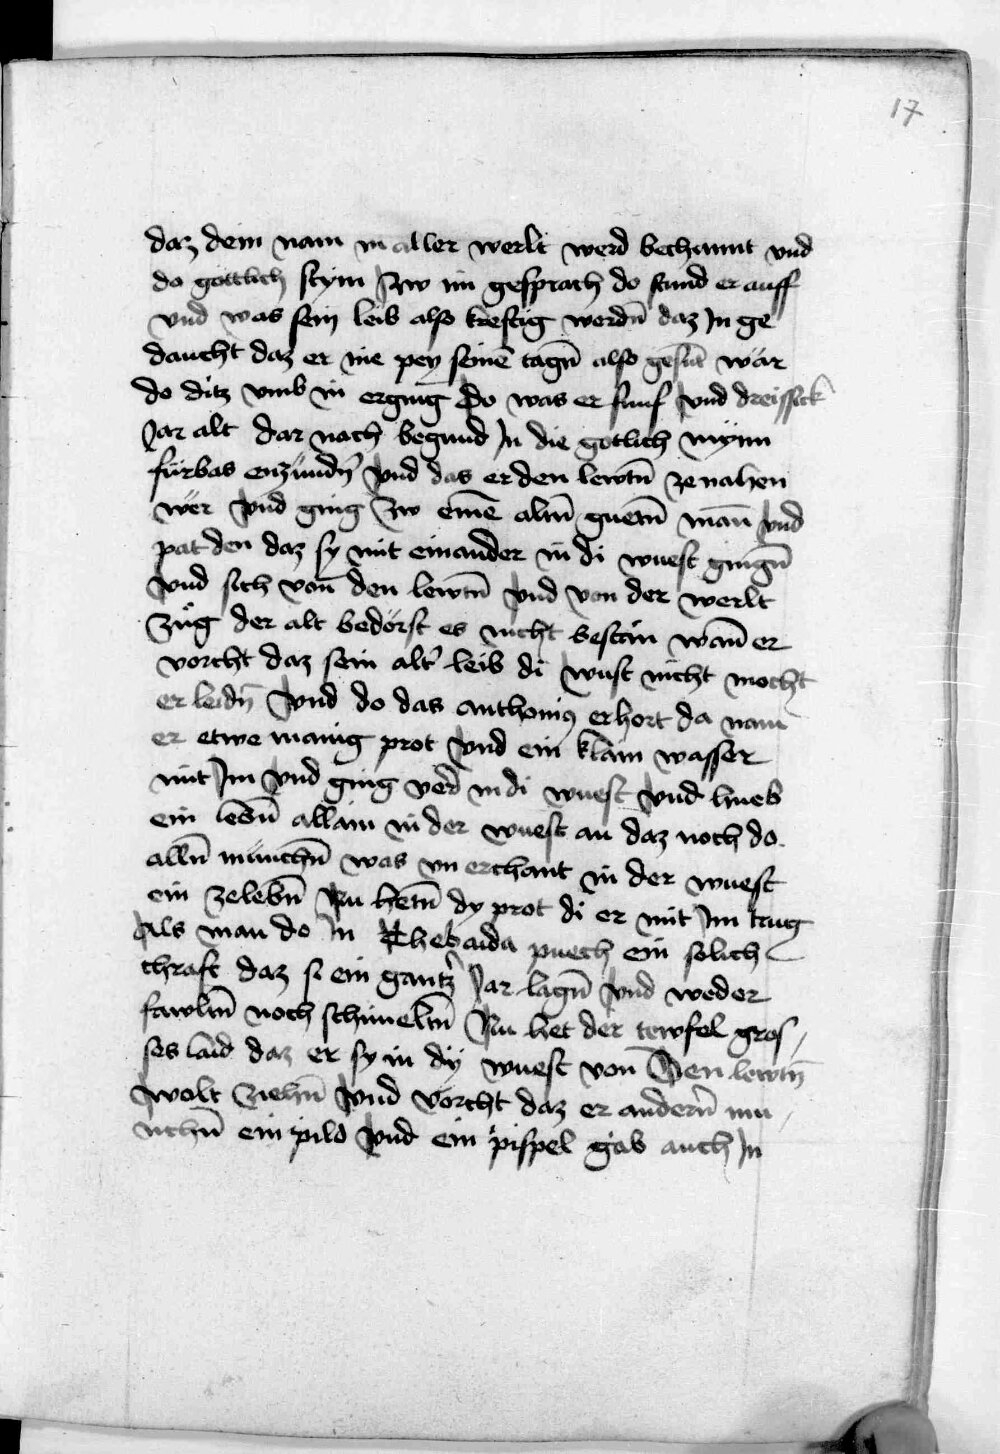 17
daz dein nam in aller werlt werd bechannt vnd
do gottlich stym zw im gesprach do stund er auff
vnd was sein leib also kreftig werdn̄ daz In ge
daucht daz er nie pey seinē tagn̄ also gesūt wär
do ditz vmb in erging Do was er funf vnd dreissick
Jar alt dar nach begund In die gotlich mynn
fürbas enzündn̄ vnd das er den lewtn̄ ze nahen
wer vnd ging zw einē altn̄ guetn̄ man̄ vnd
pat den daz sy mit einander in di wuest gingn̄
vnd sich von den lewtn̄ vnd von der werlt
züg der alt bedorft es nicht bestan wan̄ er
vorcht daz sein alt' leib di wust nicht mocht
er leidn̄ vnd do das anthonius erhort da nam
er etwe manig prot vnd ein klain wasser
mit Im vnd ging verr̄ in di wuest vnd hueb
ein lebn̄ allain in der wuest an daz noch do
alln̄ münchn̄ was vn erchant in der wuest
ein zelebn̄ Nu hetn̄ dy prot di er mit Im trug
Als man do In Thebaida puech ein solich
chraft daz si ein gantz' Jar lagn̄ vnd weder
fawltn̄ noch schimeltn̄ Nu het der tewfel gros
ses laid daz er sy in dy wuest von Den lewtn̄
wolt ziehn̄ vnd vorcht daz er andern̄ mu
nchn̄ ein pild vnd ein pispel gab auch In